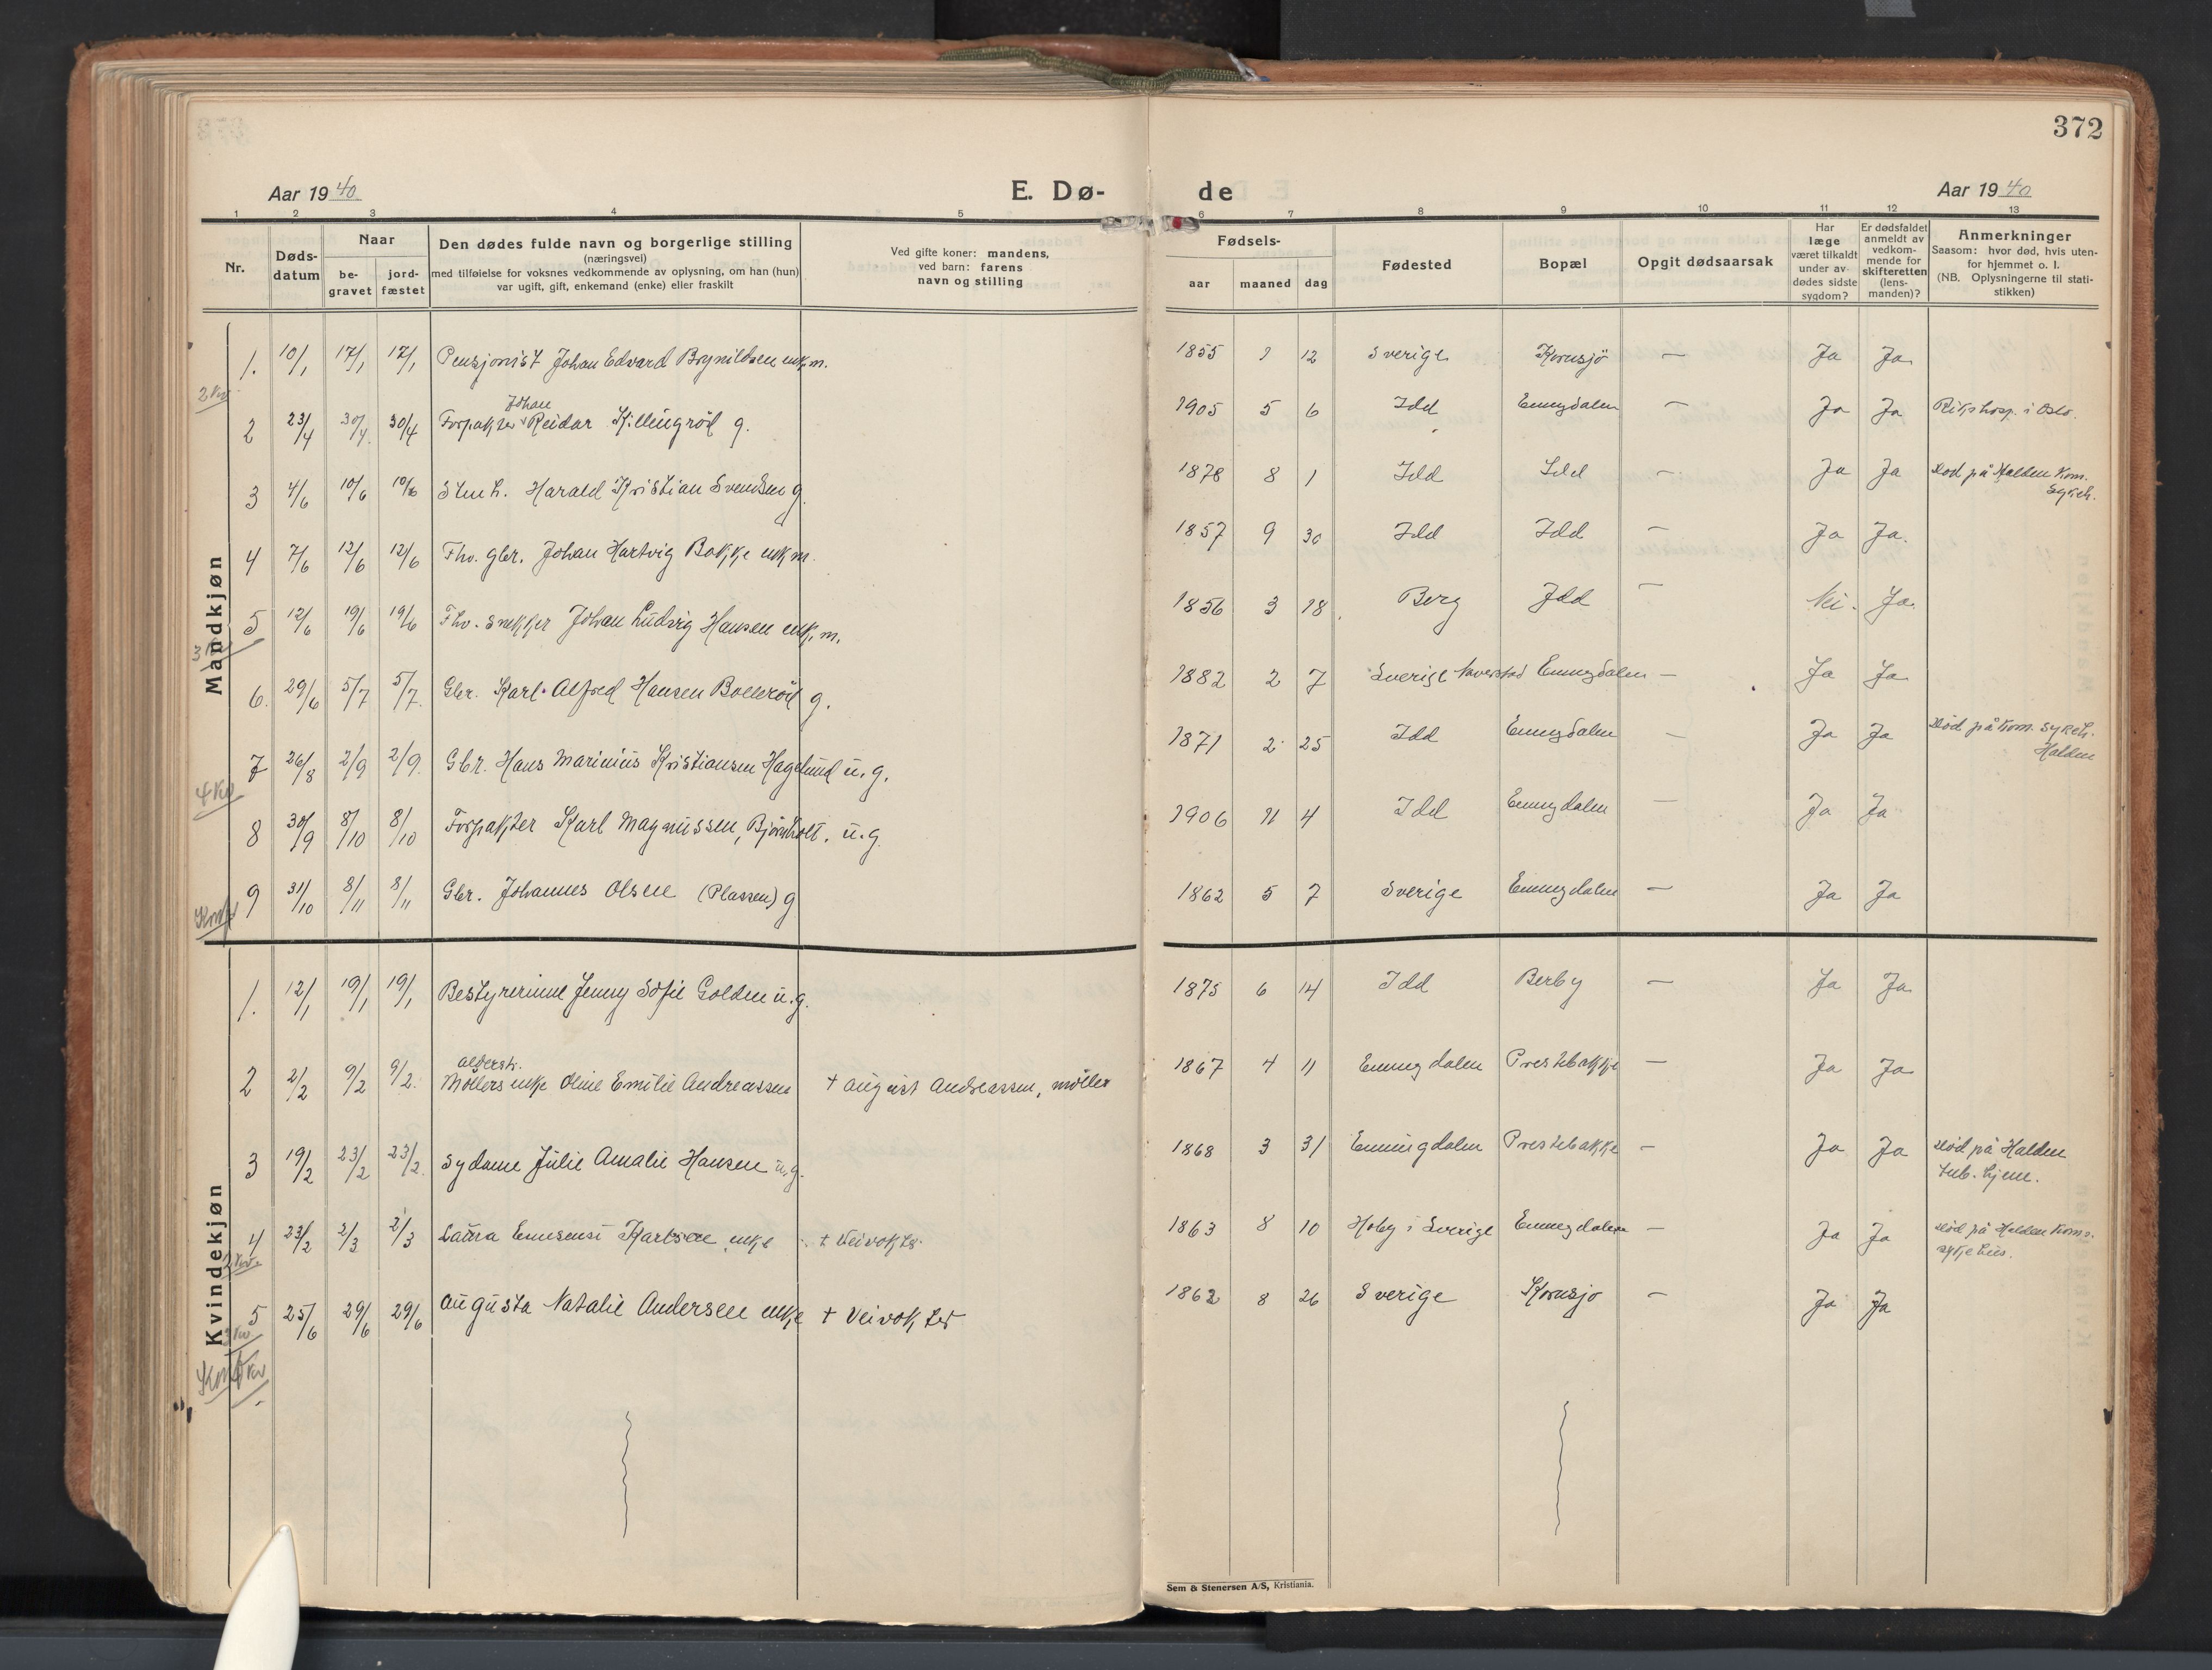 372
Aar 1940 E. Dø- de Aar 1940
1 2 3 4 5 6 7 8 9 10 11 12 13
Nr.
Døds-
datum
Naar
be-
gravet
jord-
fæstet
Den dødes fulde navn og borgerlige stilling
(næringsvei)
med tilføielse for voksnes vedkommende av oplysning, om han (hun)
var ugift, gift, enkemand (enke) eller fraskilt
Ved gifte koner: mandens,
ved barn: farens
navn og stilling
Fødsels-
aar maaned dag
Fødested
Bopæl
Opgit dødsaarsak
Har
læge
været tilkaldt
under av-
dødes sidste
sygdom?
Er dødsfaldet
anmeldt av
vedkom-
mende for
skifteretten
(lens-
manden)?
Anmerkninger
Saasom: hvor død, hvis uten-
for hjemmet o. l.
(NB. Oplysningerne til stati-
stikken)
Mandkjøn
1. 10/1 17/1 17/1 Pensjonist Johan Edvard Brynildsen enk.m. 1855 12 Sverige Kornsjø — Ja Ja
2 kv.
Johan
2 23/4 30/4 30/4 Forpakter Reidar Killingrød g. 1905 5 6 Idd Enningdalen — Ja Ja Rikshosp. i Oslo.
3 4/6 10/6 10/6 Harald Kristian Svendsen g 1878 8 1 Idd Idd — Ja Ja Død på Halden Kom.
Sykeh.
4 7/6 12/6 12/6 Fhv. gbr. Johan Hartvig Bakke enk m. 1857 9 30 Idd Idd — Ja Ja.
5 12/6 19/6 19/6 Fhv. snekker Johan Ludvig Hansen enk. m. 1856 3 18 Berg Idd — Nei. Ja.
6. 29/6 5/7 5/7. Gbr. Karl Alfred Hansen Bollerød g. 1882 2 7 Sverige Naverstad Enningdalen — Ja Ja
7 26/8 2/9 2/9. Gbr. Hans Marinius Kristiansen Hagelund u. g. 1871 2 25 Idd Enningdalen — Ja Ja Død på Kom. sykeh.
Halden
4 kv
8 30/9 8/10 8/10 Forpakter Karl Magnussen, Bjørnholt. u. g. 1906 11 4 Idd Enningdalen — Ja Ja
9 31/10 8/11 8/11 Gbr. Johannes Olsen (Plassen) g 1862 5 7 Sverige Enningdalen — Ja Ja
Konf
Kvindekjøn
1. 12/1 19/1 19/1 Bestyrerinne Jenny Sofie Golden u. g. 1875 6 14 Idd Berby — Ja Ja
alderstr.
2 2/2 9/2 9/2. Møllers enke Oline Emilie Andreassen † August Andreassen, møller 1867 4 11 Enningdalen Prestebakke — Ja Ja
3 19/2 23/2 23/2. Sydame Julie Amalie Hansen u. g. 1868 3 31 Enningdalen Prestebakke — Ja Ja Død på Halden
tub. hjem.
4 23/2 2/3 2/3 Laura Karlsen enke † Veivokter 1863 8 10 i Sverige Enningdalen — Ja Ja Død på Halden Kom.
sykehus.
5 25/6 29/6 29/6 Augusta Natalie Andersen enke † Veivokter 1862 8 26 Sverige Kornsjø — Ja Ja
3 kv
Sem & Stenersen A/S, Kristiania.